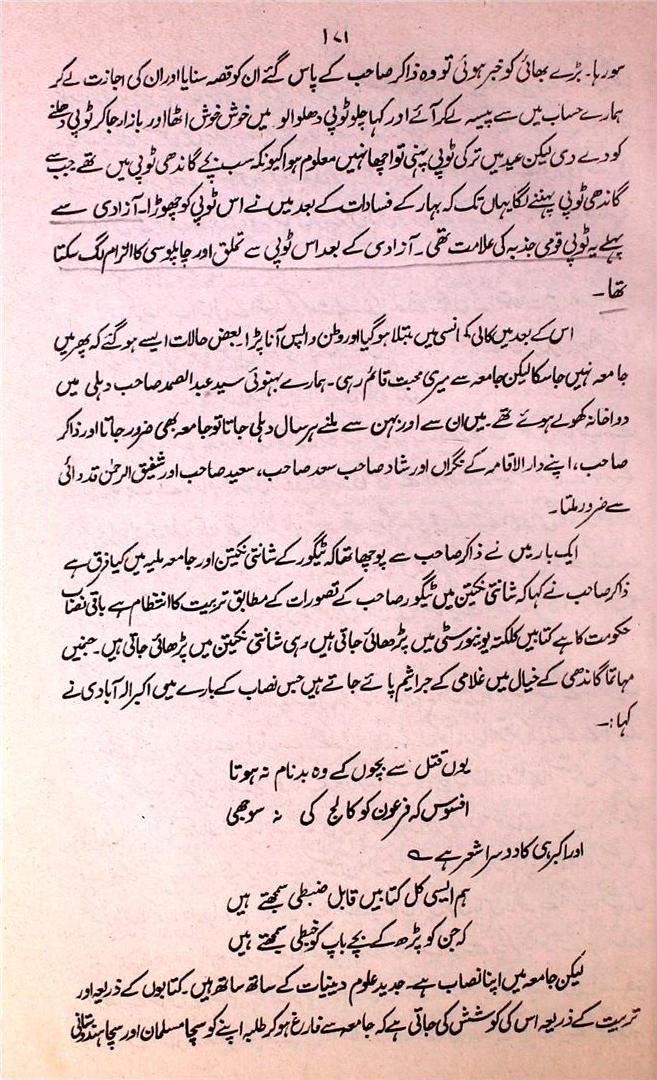 ۱۷۱
سو رہا۔ بڑے بھائی کو خبر ہوئی تو وہ ذاکر صاحب کے پاس گئے ان کو قصہ سنایا اور ان کی اجازت لے کر
ہمارے حساب میں سے پیسہ لے کر آئے اور کہا چلو ٹوپی دھلوالو میں خوش خوش اٹھا اور بازار جا کر ٹوپی دھلنے
کو دے دی لیکن عید میں ترکی ٹوپی پہنی تو اچھا نہیں معلوم ہوا کیونکہ سب بچے گاندھی ٹوپی میں تھے جب سے
گاندھی ٹوپی پہننے لگا یہاں تک کہ بہار کے فسادات کے بعد میں نے اس ٹوپی کو چھوڑا۔ آزادی سے
پہلے یہ ٹوپی قومی جذبہ کی علامت تھی۔ آزادی کے بعد اس ٹوپی سے تملق اور چاپلوسی کا الزام لگ سکتا
تھا۔
اس کے بعد میں کالی کھانسی میں مبتلا ہو گیا اور وطن واپس آنا پڑا بعض حالات ایسے ہو گئے کہ پھر میں
جامعہ نہیں جا سکا لیکن جامعہ سے میری محبت قائم رہی۔ ہمارے بہنوئی سید عبدالصمد صاحب دہلی میں
دواخانہ کھولے ہوئے تھے۔ میں ان سے اور بہن سے ملنے ہر سال دہلی جاتا تو جامعہ بھی ضرور جاتا اور ذاکر
صاحب، اپنے دارالاقامہ کے نگراں اور شاد صاحب سعد صاحب، سعید صاحب اور شفیق الرحمٰن قدوائی
سے ضرور ملتا۔
ایک بار میں نے ذاکر صاحب سے پوچھا تھا کہ ٹیگور کے شانتی نکیتن اور جامعہ ملیہ میں کیا فرق ہے
ذاکر صاحب نے کہا کہ شانتی نکیتن میں ٹیگور صاحب کے تصورات کے مطابق تربیت کا انتظام ہے باقی نصاب
حکومت کا ہے کتابیں کلکتہ یونیورسٹی میں پڑھائی جاتی ہیں وہی شانتی نکیتن میں پڑھائی جاتی ہیں۔ جنہیں
مہاتما گاندھی کے خیال میں غلامی کے جراثیم پائے جاتے ہیں جس نصاب کے بارے میں اکبر الہ آبادی نے
کہا:۔
یوں قتل سے بچوں کے وہ بدنام نہ ہوتا
افسوس کہ فرعون کو کالج کی نہ سوجھی
اور اکبر ہی کا دوسرا شعر ہے ؎
ہم ایسی کل کتابیں قابل ضبطی سمجھتے ہیں
کہ جن کو پڑھ کے بچے باپ کو خبطی سمجھتے ہیں
لیکن جامعہ میں اپنا نصاب ہے۔ جدید علوم دینیات کے ساتھ ساتھ ہیں۔ کتابوں کے ذریعہ اور
تربیت کے ذریعہ اس کی کوشش کی جاتی ہے کہ جامعہ سے فارغ ہو کر طلبہ اپنے کو سچا مسلمان اور سچا ہندوستانی